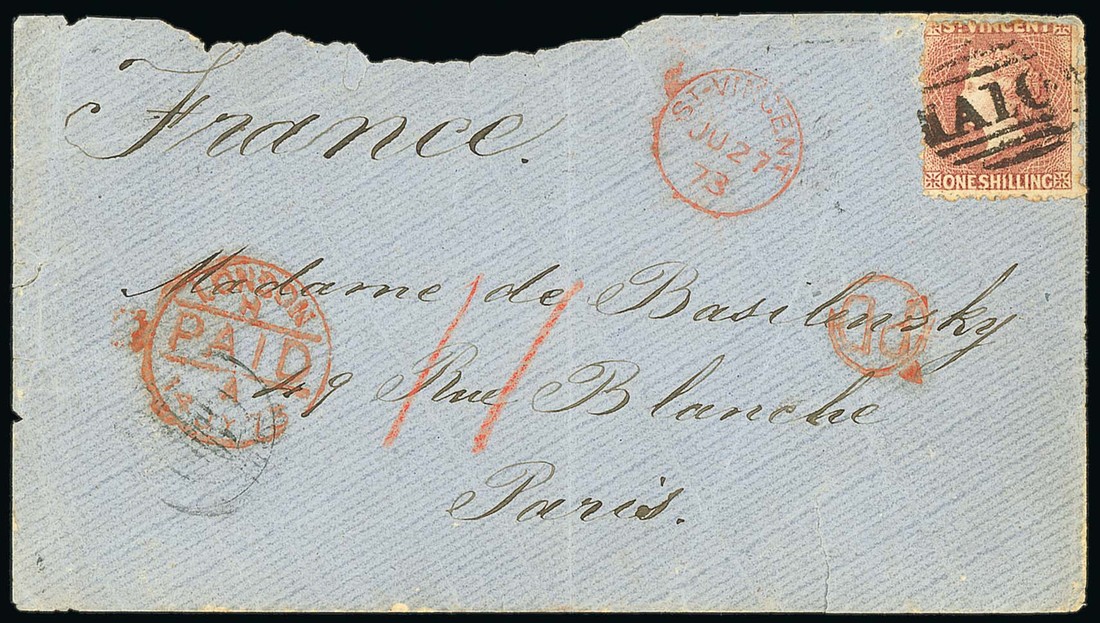 France.
ST. VINCENT
A10
ONE SHILLING
ST-VINCENT
JU 27
73
Madame de Basilensky
49 Rue Blanche
Paris.
LONDON
PAID